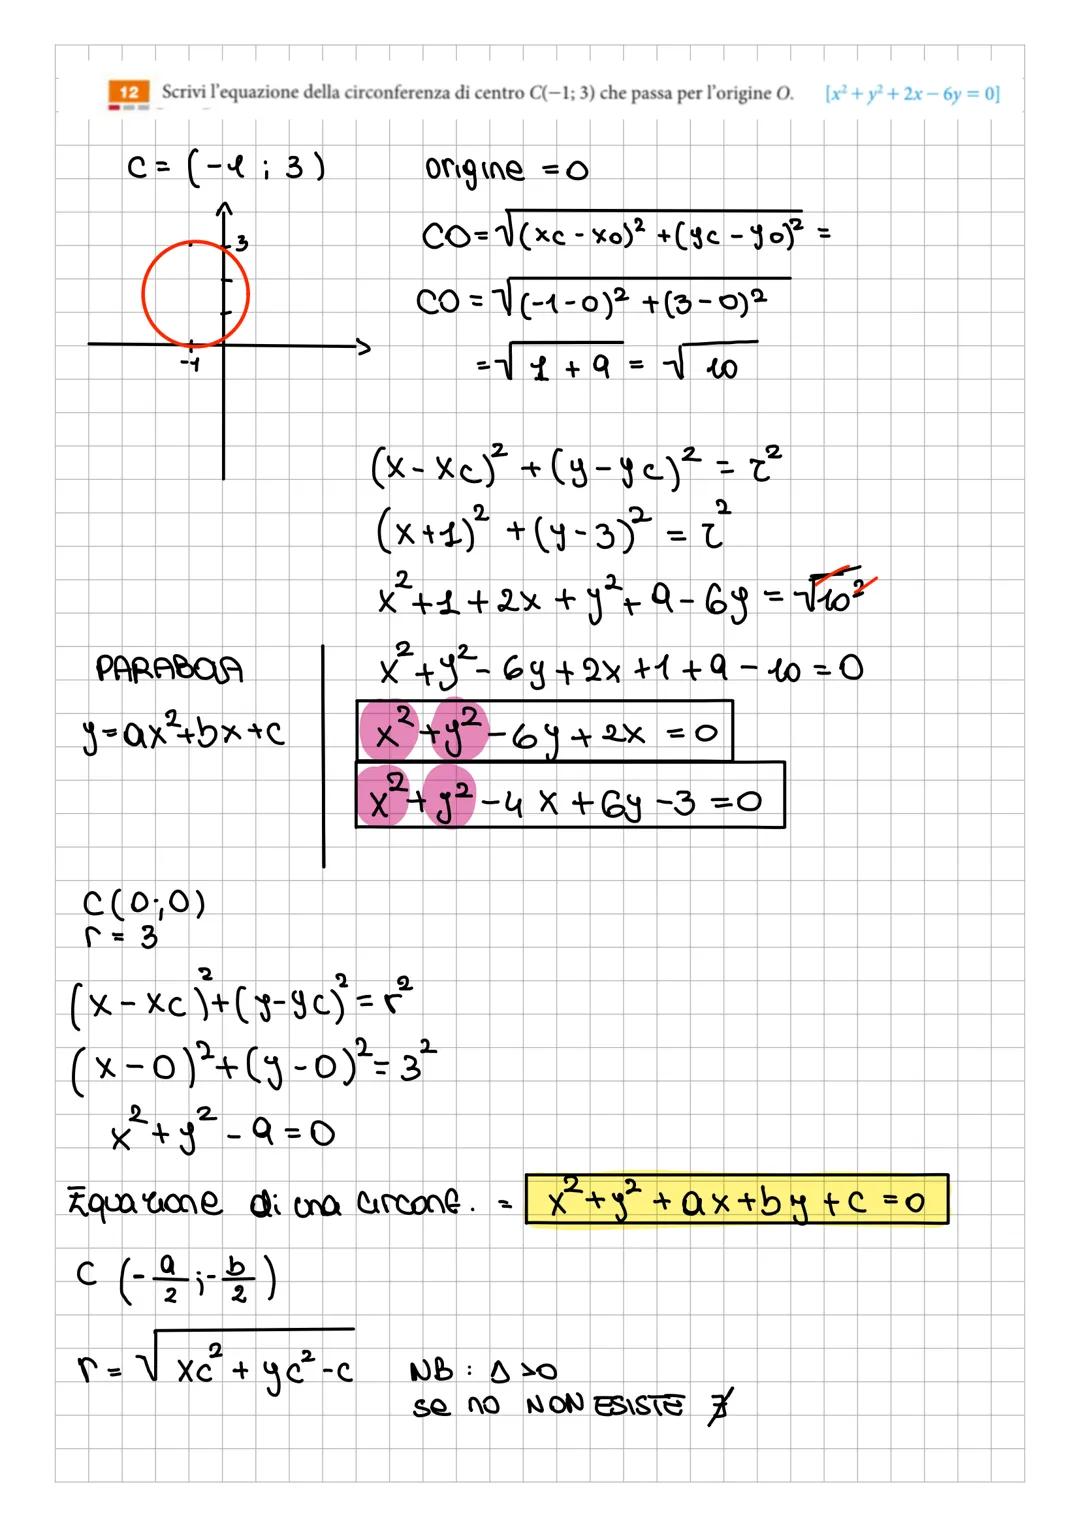 12 Scrivi l'equazione della circonferenza di centro C(−1; 3) che passa per l'origine O. [x² + y² + 2x − 6y = 0]
C = (-1 ; 3)
origine = 0
3
-1
CO = √(xc - xo)² + (yc - yo)² =
CO = √(-1-0)² + (3-0)²
= √1 + 9 = √10
(x - xc)² + (y - yc)² = r²
(x+1)² + (y-3)² = r²
x² + 1 + 2x + y² + 9 - 6y = √10²
x² + y² - 6y + 2x + 1 + 9 - 10 = 0
PARABOLA
y = ax² + bx + c
x² + y² - 6y + 2x = 0
x² + y² - 4x + 6y - 3 = 0
C(0;0)
r = 3
(x - xc)² + (y - yc)² = r²
(x - 0)² + (y - 0)² = 3²
x² + y² - 9 = 0
Equazione di una circonf. = x² + y² + ax + by + c = 0
C (-a/2 ; -b/2)
r = √xc² + yc² - c
NB : Δ >0
se no NON ESISTE ∄